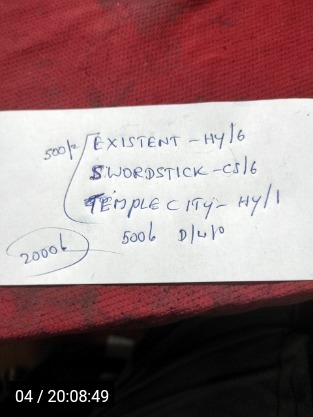 500/- EXISTENT - HY/6
SWORDSTICK - CS/6
TEMPLE CITY - HY/1
500b D/w/p
2000b
04 / 20:08:49